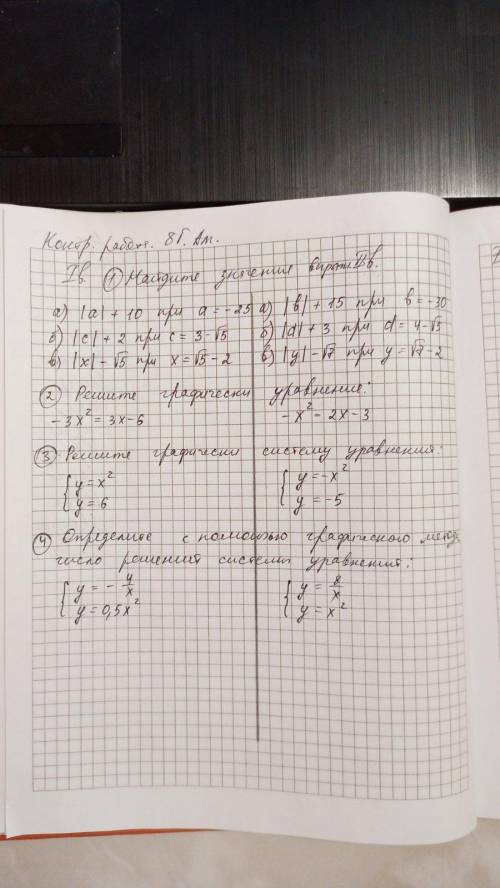 Контр. работ. 8Г. Ал.
I в. ① Найдите значение выраж. II в.
а) |a| + 10 при a = -25 а) |b| + 15 при b = -30
б) |c| + 2 при c = 3-√5 б) |d| + 3 при d = 4-√5
в) |x| - √5 при x = √5-2 в) |y| - √7 при y = √7-2
② Решите графически уравнение:
-3x² = 3x-6 -x² - 2x - 3
③ Решите графически систему уравнений:
{ y = x² { y = -x²
y = 6 y = -5
④ Определите с помощью графического метод
число решений системы уравнений:
{ y = - 4/x { y = 8/x
y = 0,5x² y = x²